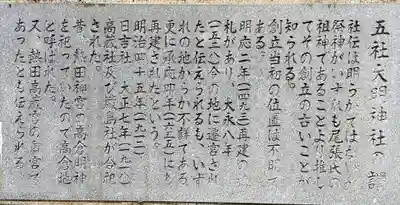 五社大明神社の碑
社伝は明らかではないが
祭神がいずれも尾張氏の
祖神であることより推し
てその創立の古いことが
知られる。
創立当初の位置は不明で
ある。
明応二年(一四九三)再建の棟
札があり、大永八年
(一五二八)今の地に遷宮され
たと伝えられるも、いず
れの地からか不詳である
更に承応四年(一六五五)に
再建されたという。
明治四十五年(一九一二)
日吉社、大正七年(一九一八)
高蔵社及び厳島社が合祀
された。
昔、熱田神宮の高倉明神
を祀っていたので高倉地
と呼ばれた。
又、熱田高蔵宮の
あったとも伝えられる。